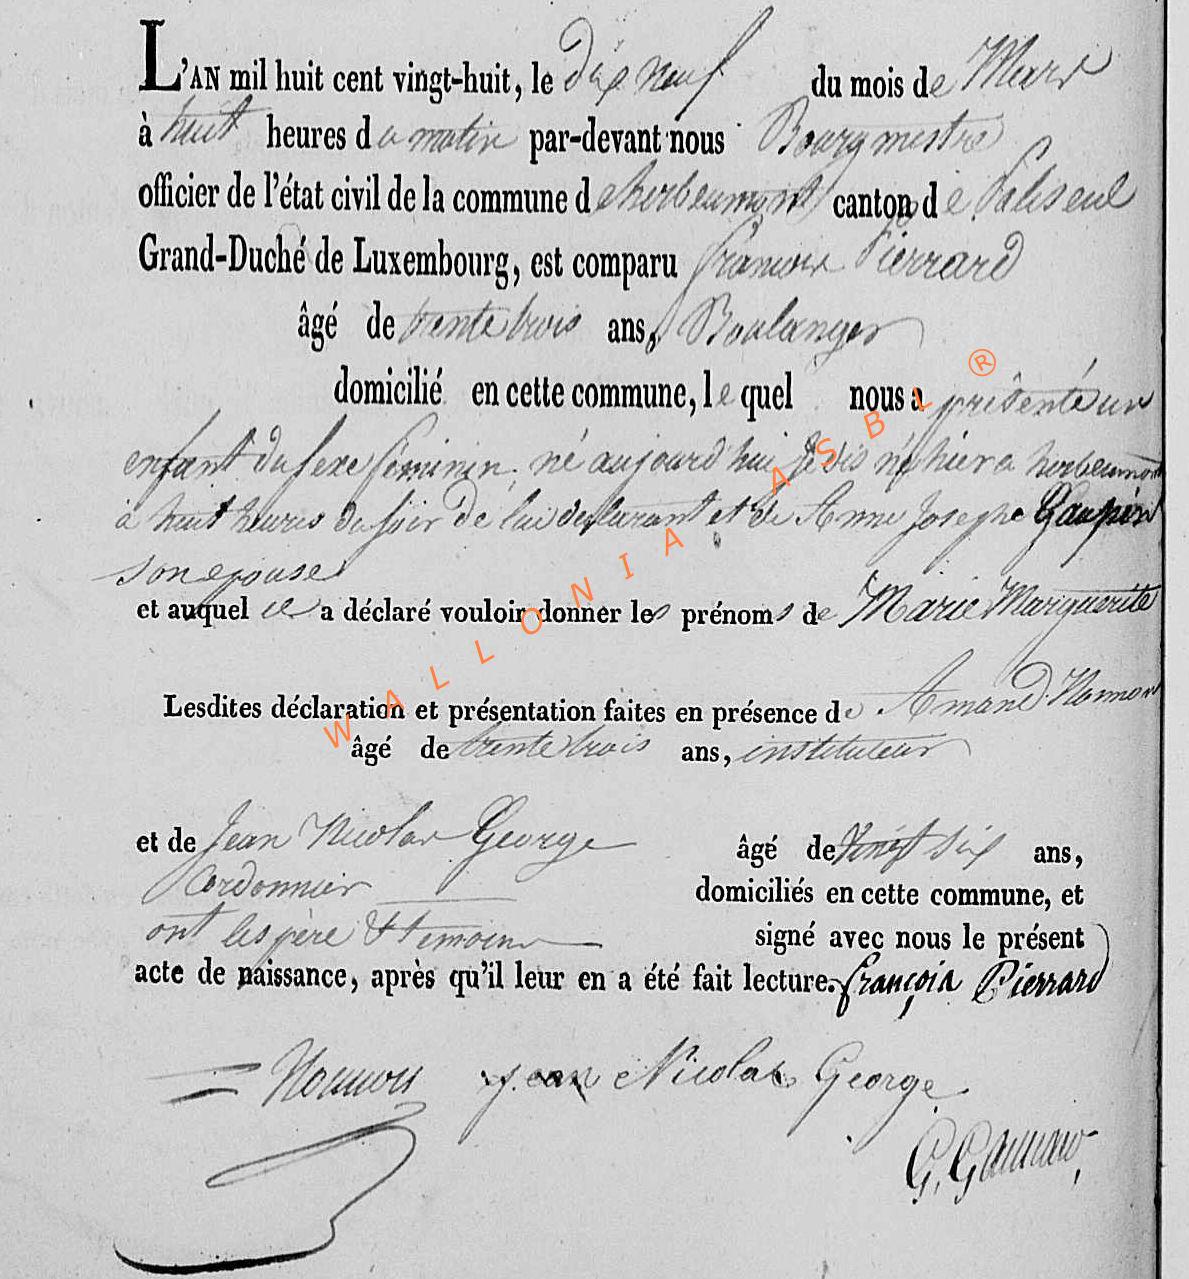 L'AN mil huit cent vingt-huit, le dix neuf du mois de Mars
à huit heures du matin par-devant nous Bourgmestre
officier de l'état civil de la commune d'herbeumont canton de Paliseul
Grand-Duché de Luxembourg, est comparu françois Pierrard
âgé de trente trois ans, Boulanger
domicilié en cette commune, lequel nous a présenté un
enfant du sexe féminin, né aujourd'hui je dis né hier a herbeumont
à huit heures du soir de lui declarant et de Anne Josephe
son epouse
et auquel il a déclaré vouloir donner les prénoms de Marie Marguerite
Lesdites déclaration et présentation faites en présence de Amand
âgé de trente trois ans, instituteur
et de Jean Nicolas George âgé de vingt six ans,
Cordonnier domiciliés en cette commune, et
ont les père & temoins signé avec nous le présent
acte de naissance, après qu'il leur en a été fait lecture. françois Pierrard
jean Nicolas George
G.
WALLONIA ASBL ®